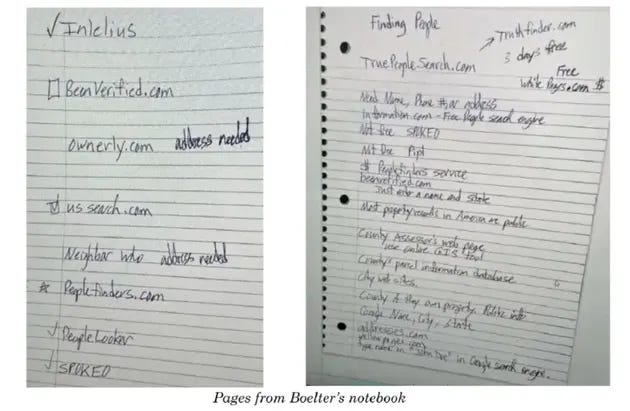 ✓ Intelius
☐ BeenVerified.com
ownerly.com address needed
☑ us search.com
Neighbor who address needed
☆ Peoplefinders.com
✓ PeopleLooker
✓ SPOKEO
Finding People
→ Truthfinder.com
3 days free
TruePeopleSearch.com
Free
White Pages.com $
Need Name, Phone #, or address
information.com - Free People search engine
Not free SPOKEO
Not free Pipl
$ Peoplefinders service
beenverified.com
Just enter a name and state
Most property records in America are public
County Assessor's web page
use online GIS tool
County's parcel information database
city web sites.
County if they own property. Public info
Google Name, City, State
addresses.com
yellowpages.com
type name in "John Doe" in Google search engine.
Pages from Boelter's notebook